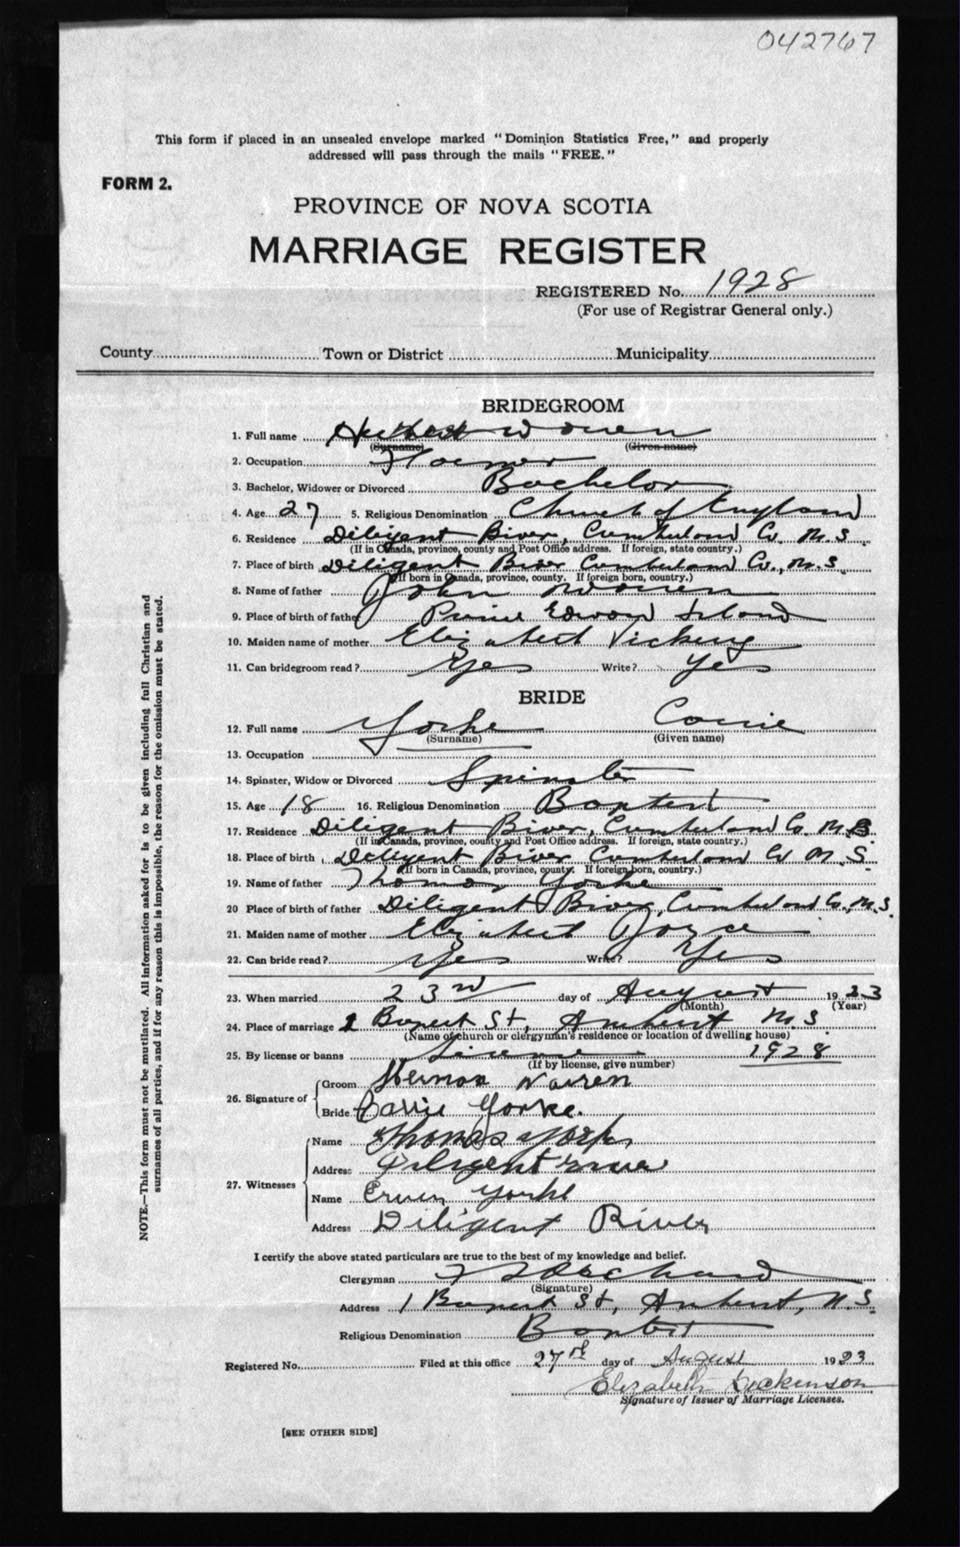 042767
This form if placed in an unsealed envelope marked "Dominion Statistics Free," and properly
addressed will pass through the mails "FREE."
FORM 2.
PROVINCE OF NOVA SCOTIA
MARRIAGE REGISTER
REGISTERED No. 1928
(For use of Registrar General only.)
County Town or District Municipality
BRIDEGROOM
1. Full name
(Surname) (Given name)
2. Occupation
3. Bachelor, Widower or Divorced Bachelor
4. Age 27 5. Religious Denomination Church of England
6. Residence Diligent River, Cumberland Co. N.S.
(If in Canada, province, county and Post Office address. If foreign, state country.)
7. Place of birth Diligent River Cumberland Co., N.S.
(If born in Canada, province, county. If foreign born, country.)
8. Name of father John Warren
9. Place of birth of father Prince Edward Island
10. Maiden name of mother Elizabeth
11. Can bridegroom read? Yes Write? Yes
BRIDE
12. Full name Yorke Carrie
(Surname) (Given name)
13. Occupation
14. Spinster, Widow or Divorced Spinster
15. Age 18 16. Religious Denomination Baptist
17. Residence Diligent River, Cumberland Co. N.S.
(If in Canada, province, county and Post Office address. If foreign, state country.)
18. Place of birth Diligent River Cumberland Co N.S.
(If born in Canada, province, county. If foreign born, country.)
19. Name of father Thomas Yorke
20 Place of birth of father Diligent River, Cumberland Co., N.S.
21. Maiden name of mother Elizabeth
22. Can bride read? Yes Write? Yes
23. When married 23rd day of August 1923
(Month) (Year)
24. Place of marriage St, Amherst N.S.
(Name of church or clergyman's residence or location of dwelling house)
25. By license or banns License 1928
(If by license, give number)
26. Signature of
Groom Warren
Bride Carrie Yorke.
27. Witnesses
Name Thomas York
Address Diligent River
Name Yorke
Address Diligent River
I certify the above stated particulars are true to the best of my knowledge and belief.
Clergyman
(Signature)
Address 1 St, Amherst, N.S.
Religious Denomination Baptist
Registered No. Filed at this office 27rd day of August 1923
Elizabeth
Signature of Issuer of Marriage Licenses.
[SEE OTHER SIDE]
NOTE.—This form must not be mutilated. All information asked for is to be given including full Christian and
surnames of all parties, and if for any reason this is impossible, the reason for the omission must be stated.